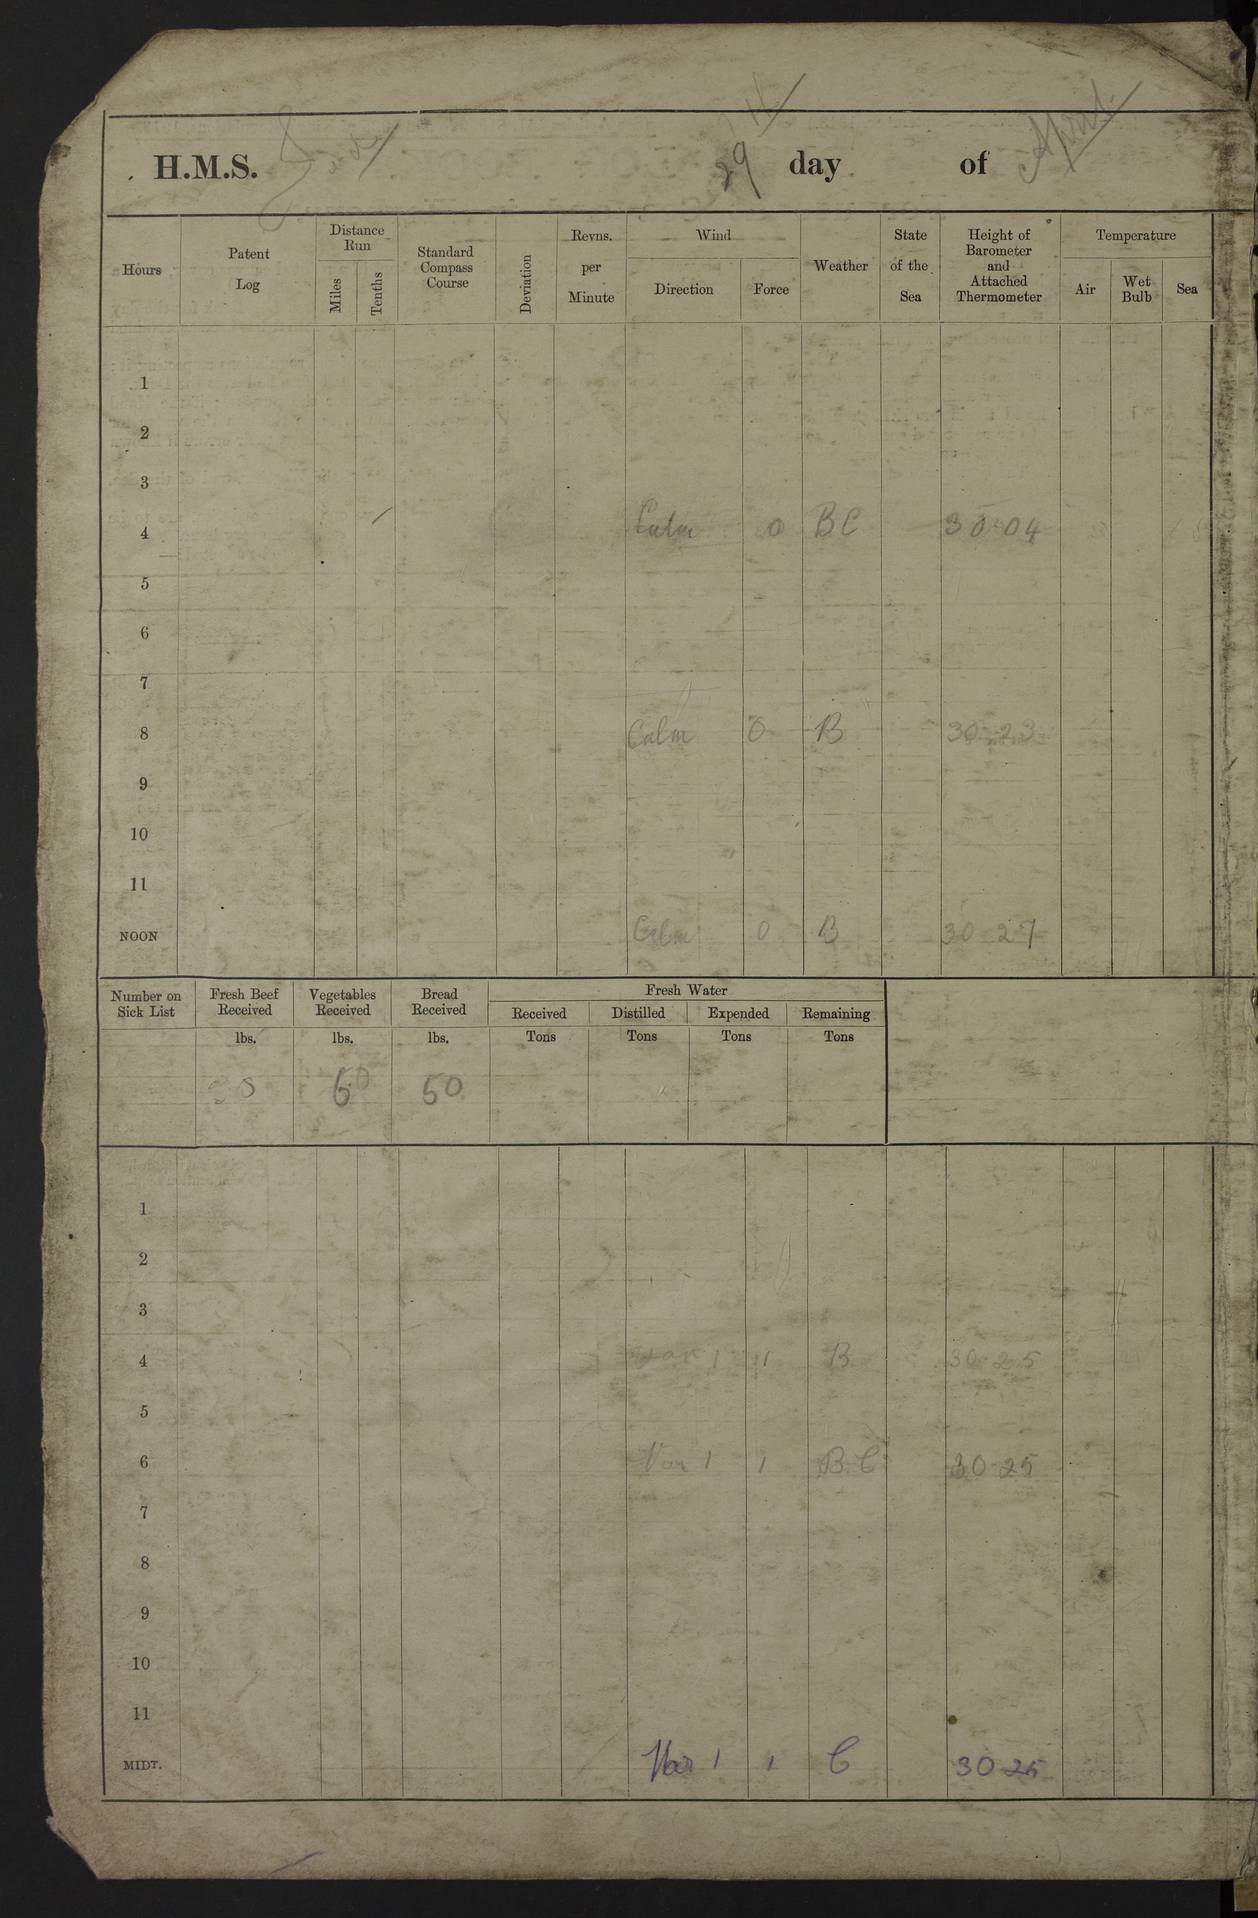 H.M.S. 29 th day of April
Hours Patent Log Distance Run Miles Tenths Standard Compass Course Deviation Revns. per Minute Wind Direction Force Weather State of the Sea Height of Barometer and Attached Thermometer Temperature Air Wet Bulb Sea
1
2
3
4 Calm 0 BC 30.04
5
6
7
8 Calm 0 B 30-23
9
10
11
NOON Calm 0 B 30 27
Number on Sick List Fresh Beef Received Vegetables Received Bread Received Fresh Water
Received Distilled Expended Remaining
lbs. lbs. lbs. Tons Tons Tons Tons
60 50
1
2
3
4 Var 1 B 30-25
5
6 Var 1 1 B.C 30-25
7
8
9
10
11
MIDT. Var 1 1 C 30-25